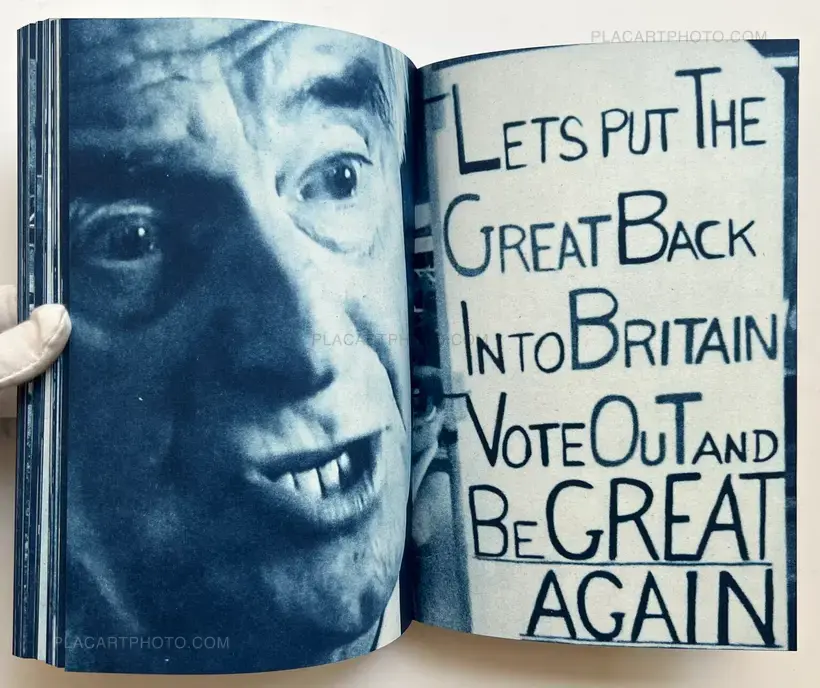 PLACARTPHOTO.COM
LETS PUT THE
GREAT BACK
INTO BRITAIN
VOTE OUT AND
BE GREAT
AGAIN
PLACARTPHOTO.COM
PLACARTPHOTO.COM